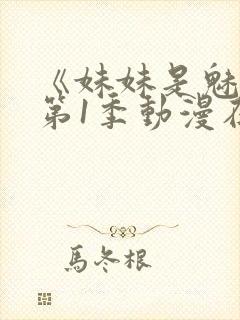 《妹妹是魅
第1季動漫在
馬冬根